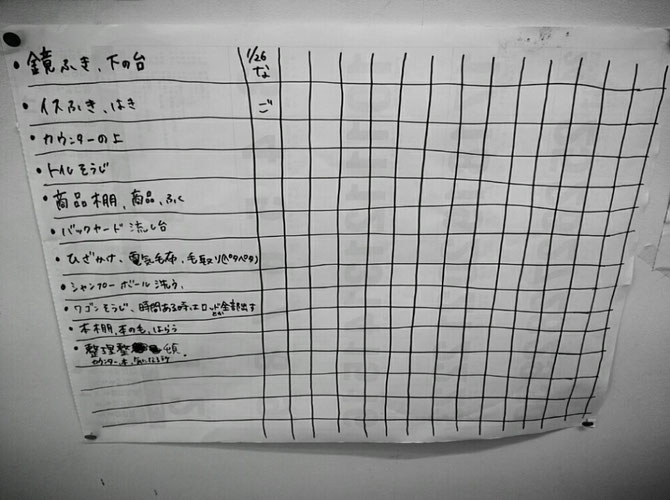 ・鏡ふき、下の台
1/26
な
・イスふき、はき
ご
・カウンターの上
・トイレそうじ
・商品棚、商品、ふく
・バックヤード流し台
・ひざかけ、電気毛布、毛取り(ペタペタ)
・シャンプーボール洗う、
・ワゴンそうじ、時間ある時はロッド全部出す
・本棚、本の毛、はらう
・整理整頓。
カウンター、本